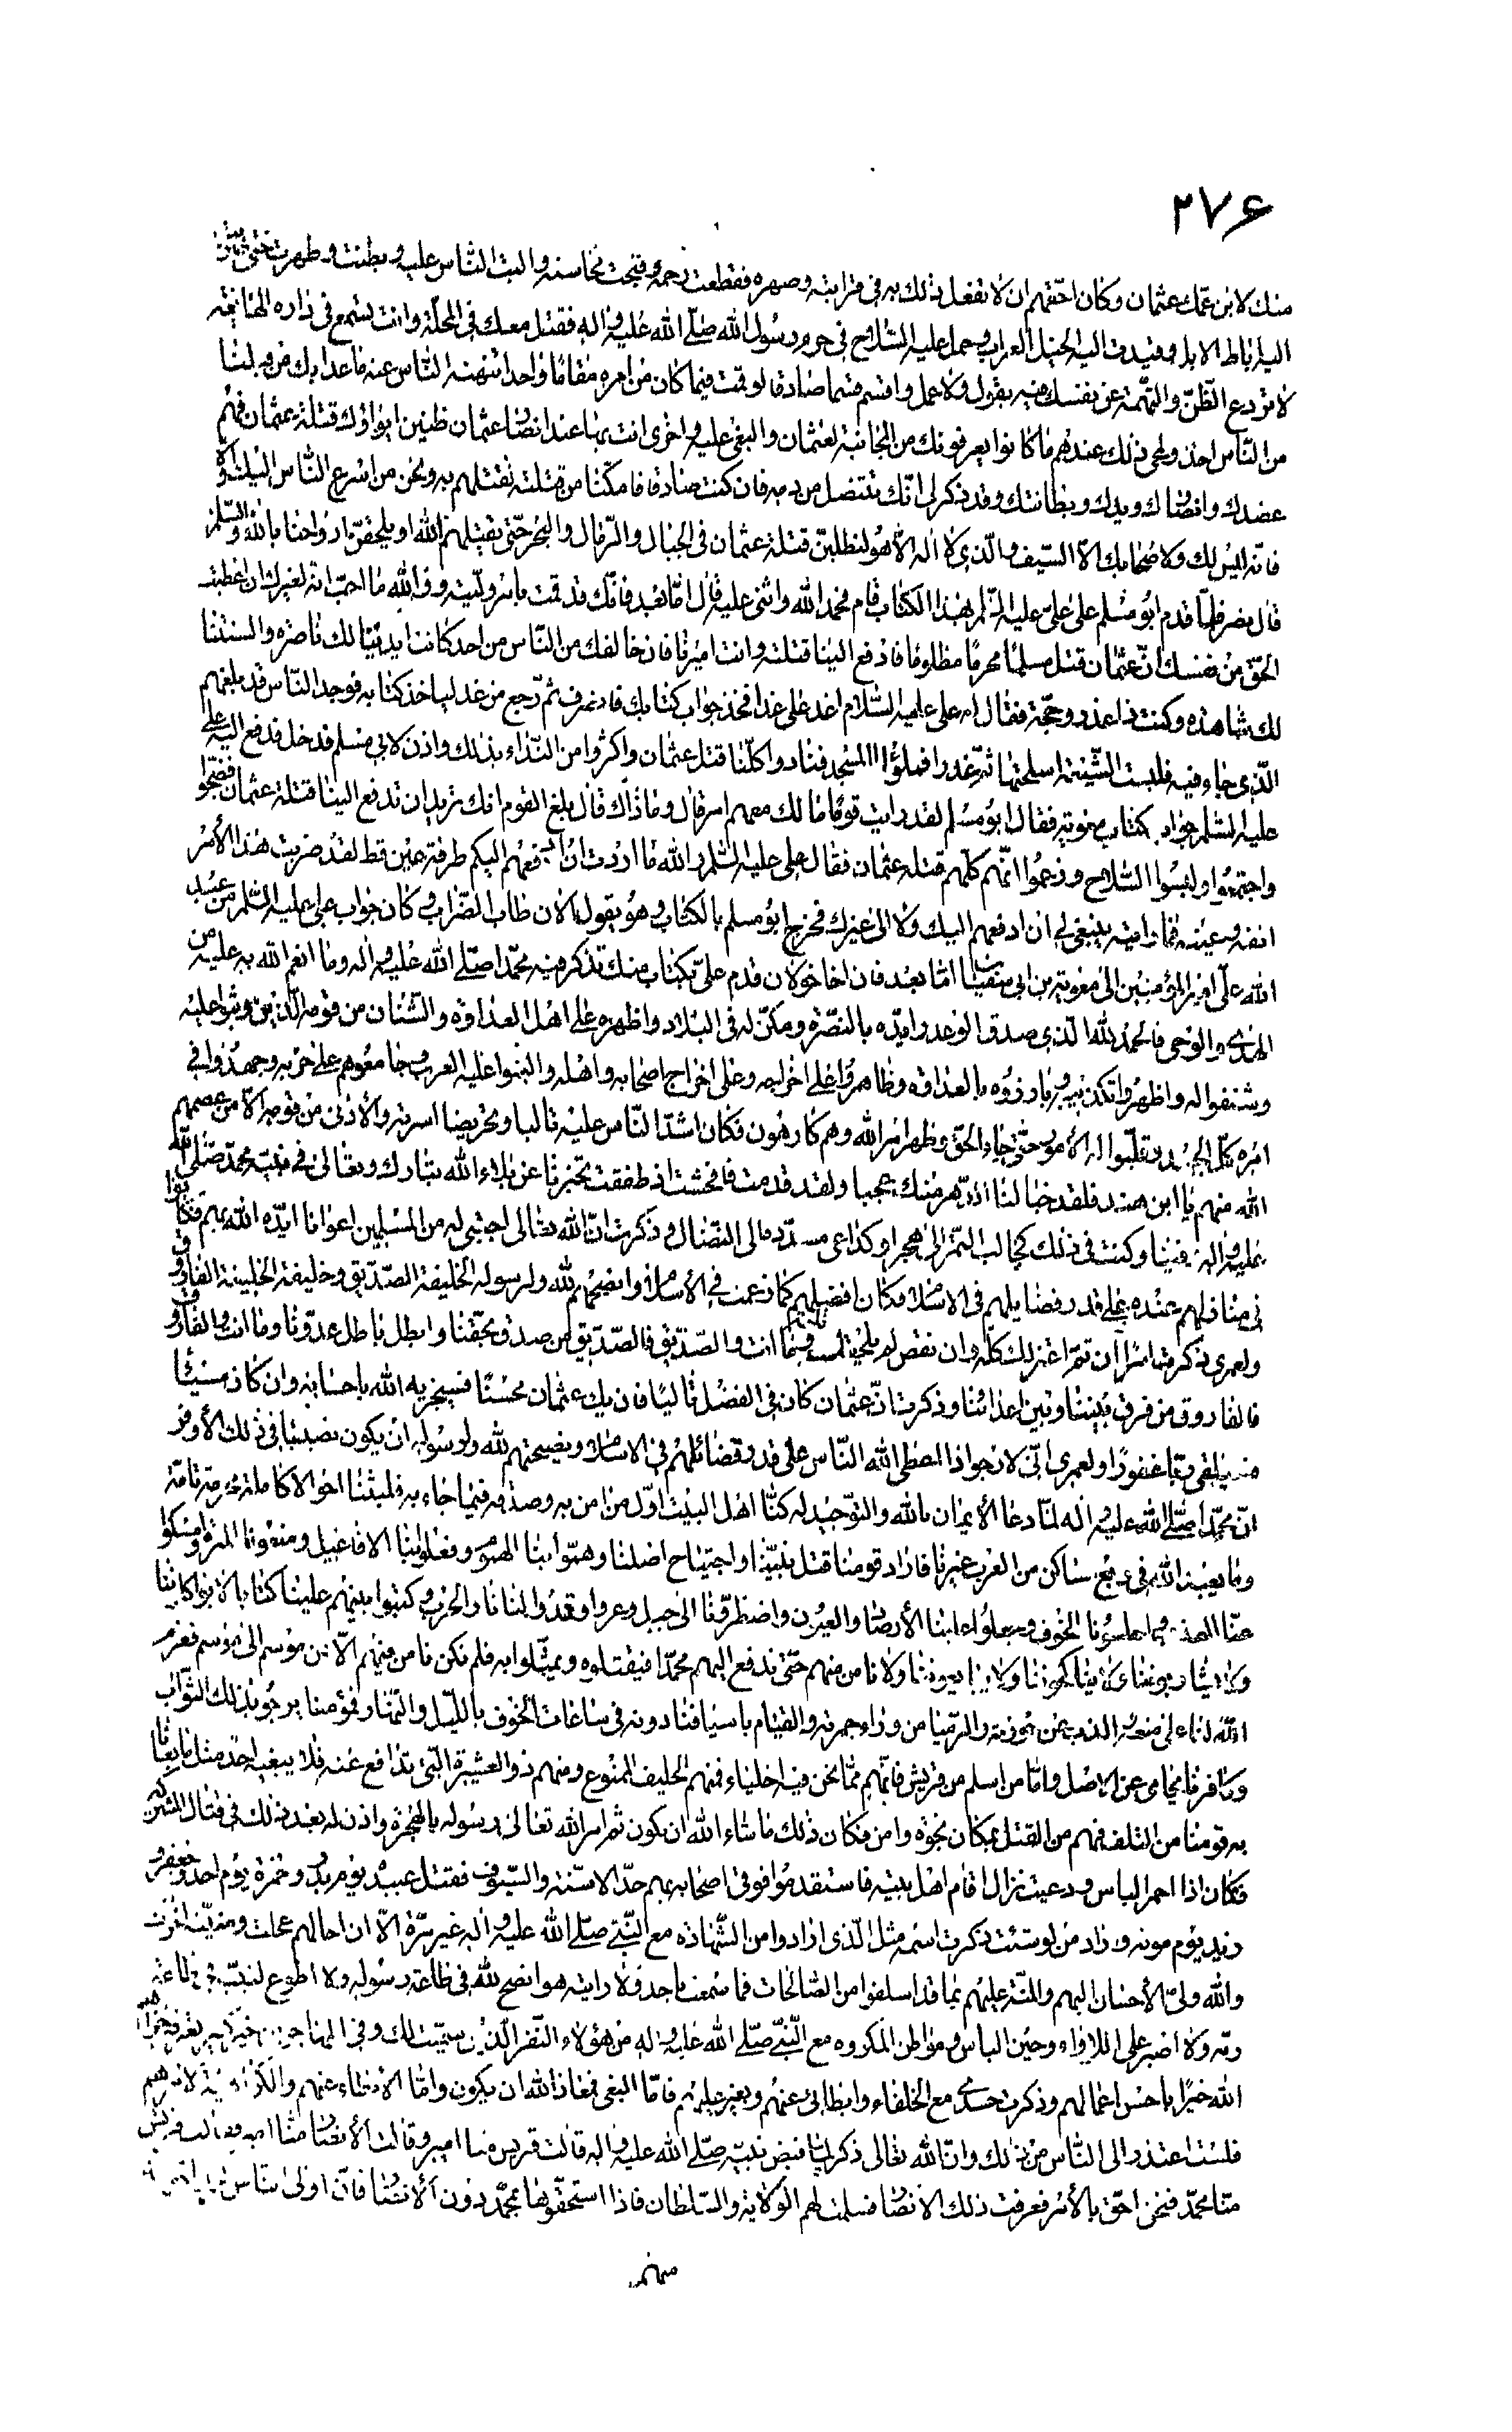 ۲۷۶
منك لابن عمّك عثمان وكان احقّهم ان لا تفعل ذلك به فى قرابته وصهره فقطعت رحمه وقبحت محاسنه والبت النّاس عليه وبطنت وظهرت حتّى
اليه اباط الابل وقيدت اليه الخيل العراب وحمل عليه السّلاح فى حرم رسول الله صلّى الله عليه واله فقتل معك فى المحلّة وانت تسمع فى داره الهايعة
لا تردع الظّنّ والتّهمة عن نفسك فيه بقول ولا عمل واقسم قسما صادقا لو قمت فيما كان من امره مقامًا واحدا تنهنه النّاس عنه ما عدل بك من قبلنا
من النّاس احدا ولمحى ذلك عندهم ما كانوا يعرفونك من المجانبة لعثمان والبغى عليه واخرى انت بها عند انصار عثمان ظنين ايواؤك قتلة عثمان فهم
عضدك وانصارك ويدك وبطانتك وقد ذكر لى انّك تتنصل من دمه فان كنت صادقا فامكنّا من قتلته نقتلهم به ونحن من اسرع النّاس اليك والّا
فانّه ليس لك ولا صحابك الّا السّيف والّذى لا اله الّا هو لنطلبنّ قتلة عثمان فى الجبال والرّمال والبحر حتّى يقتلهم الله او يلحقنّ ارواحنا بالله والسّلم
قال نصر فلمّا قدم ابو مسلم على علىّ عليه السّلم بهذا الكتاب قام فحمد الله واثنى عليه قال امّا بعد فانّك قد قمت بامر ولّيته ووالله ما احبّ انّه لغيرك ان اعطيت
الحق من نفسك انّ عثمان قتل مسلمًا محرمًا مظلومًا فادفع الينا قتلته وانت اميرنا فان خالفك من النّاس من احد كانت ايدينا لك ناصرة والسنتنا
لك شاهدة وكنت ذا عذر وحجّة فقال له على عليه السّلام اغد علىّ غدا فخذ جواب كتابك فانصرف ثم رجع من غد ليأخذ كتابه فوجد النّاس قد بلغهم
الّذى جاء فيه فلبست الشّيعة اسلحتها ثمّ غدوا فملؤا المسجد فنادوا كلّنا قتل عثمان واكثروا من النّداء بذلك واذن لابى مسلم فدخل فدفع اليه على
عليه السّلم جواب كتاب معوية فقال ابو مسلم لقد رايت قومًا ما لك معهم امر قال وما ذاك قال بلغ القوم انّك تريد ان تدفع الينا قتلة عثمان فضجّوا
واجتمعوا ولبسوا السّلاح وزعموا انّهم كلّهم قتلة عثمان فقال على عليه السّلم والله ما اردت ان ادفعهم اليكم طرفة عين قط لقد ضربت هذا الأمر
انفه وعينه فما رايته ينبغى لى ان ادفعهم اليك ولا الى غيرك فخرج ابو مسلم بالكتاب وهو يقول الان طاب الضّراب وكان جواب على عليه السّلم من عبد
الله علىّ امير المؤمنين الى معوية بن ابى سفيان امّا بعد فان اخا خولان قدم علىّ بكتاب منك تذكر فيه محمّدا صلّى الله عليه واله وما انعم الله به عليه من
الهدى والوحى فالحمد لله الّذى صدقه الوعد وايّده بالنصرة ومكّن له فى البلاد واظهره على اهل العداوة والشّنان من قومه الّذين وثبوا عليه
وشنفوا له واظهروا تكذيبه وبارزوه بالعداوة وظاهروا على اخراجه وعلى اخراج اصحابه واهله والبوا عليه العرب وجامعوهم على حربه وجهدوا فى
امره كلّ الجهد وقلّبوا له الأمور حتّى جاء الحق وظهر امر الله وهم كارهون فكان اشدّ النّاس عليه تاليبا وتحريضا اسرته والأدنى من قومه الّا من عصمهم
الله منهم يا ابن هند فلقد خبا لنا الدّهر منك عجبا ولقد قدمت فافحشت اذ طفقت تخبرنا عن بلاء الله تبارك وتعالى فى نبيّه محمّد صلّى الله
عليه واله وفينا وكنت فى ذلك كجالب التّمر الى هجر او كداعى مسدّده الى النّضال وذكرت انّ الله تعالى اجتبى له من المسلمين اعوانا ايّده الله بهم فكانوا
فى منازلهم عنده على قدر فضايلهم فى الاسلام وكان افضلهم كما زعمت فى الأسلام وانصحهم لله ولرسوله الخليفة الصّدّيق وخليفة الخليفة الفاروق
ولعمرى ذكرت امرًا ان تمّ اعتزلك كلّه وان نقص لم يلحقك ثلمه وما انت والصّدّيق فالصّدّيق من صدق بحقّنا وابطل باطل عدوّنا وما انت والفاروق
فالفاروق من فرق بيننا وبين اعدائنا وذكرت انّ عثمان كان فى الفضل تاليًا فان يك عثمان محسنًا فسيجزيه الله باحسانه وان كان مسيئًا
فسيلقى ربّا غفورًا ولعمرى انّى لارجو اذا اعطى الله النّاس على قدر فضائلهم فى الاسلام ونصيحتهم لله ولرسوله ان يكون نصيبنا فى ذلك الأوفر
انّ محمّدا صلّى الله عليه واله لمّا دعا الأيمان بالله والتوحيد له كنّا اهل البيت اوّل من امن به وصدّقه فيما جاء به فلبثنا احوالا كاملة مجرمة تامّة
وما يعبد الله فى ربع ساكن من العرب غيرنا فاراد قومنا قتل نبيّنا واجتياح اصلنا وهمّوا بنا الهموم وفعلوا بنا الافاعيل ومنعونا الميرة وامسكوا
عنّا العذب واحلسونا الخوف وجعلوا علينا الأرصاد والعيون واضطرّونا الى جبل وعر واوقدوا لنا نار الحرب وكتبوا بينهم علينا كتابا لا يواكلونا
ولا يشاربونا ولا يناكحونا ولا يبايعوننا ولا نامن منهم حتّى ندفع اليهم محمّدا فيقتلوه ويمثّلوا به فلم نكن نامن فيهم الّا من موسم الى موسم فعزم
الله لنا على منعه والذب عن حوزته والرّميا من وراء حرمته والقيام باسيافنا دونه فى ساعات الخوف بالليل والنّهار فمؤمنا يرجو بذلك الثّواب
وكافرنا يحامى عن الاصل وامّا من اسلم من قريش فانّهم ممّا نحن فيه اخلياء فمنهم الحليف الممنوع ومنهم ذو العشيرة الّتى تدافع عنه فلا يبغيه احد مثل ما بغانا
به قومنا من التلف فهم من القتل بمكان نجوة وامن فكان ذلك ما شاء الله ان يكون ثم امر الله تعالى رسوله بالهجرة واذن له بعد ذلك فى قتال المشركين
فكان اذا احمرّ الباس ودعيت نزال اقام اهل بيته فاستقدموا فوقى اصحابه بهم حدّ الاسّنة والسّيوف فقتل عبيدة يوم بدر وحمزة يوم احد وجعفر و
زيد يوم موته واراد من لو شئت ذكرت اسمه مثل الّذى ارادوا من الشّهادة مع النّبىّ صلّى الله عليه واله غير مرّة الّا ان اجالهم عجلت ومنيّته اخّرت
والله ولىّ الأحسان اليهم والمنّة عليهم بما قد اسلفوا من الصّالحات فما سمعت باحد ولا رايته هو انصح لله فى طاعة رسوله ولا اطوع لنبيّه فى طاعة
ربّه ولا اصبر على اللاواء وحين الباس ومواطن المكروه مع النّبىّ صلّى الله عليه واله من هؤلاء النّفر الّذين سمّيت لك وفى المهاجرين خير كثير يعرف جزاهم
الله خيرًا باحسن اعمالهم وذكرت حسدى مع الخلفاء وابطائى عنهم وبغيى عليهم فامّا البغى فمعاذ الله ان يكون وامّا الأبطاء عنهم والكراهية لامرهم
فلست اعتذر الى النّاس من ذلك وانّ الله تعالى ذكره لمّا قبض نبيّه صلّى الله عليه واله قالت قريش منا امير وقالت الأنصار منّا امير وقالت قريش
منّا محمّد فنحن احق بالأمر فعرفت ذلك الأنصار فسلمت لهم الولاية والسّلطان فاذا استحقّوها بمحمّد دون الأنصار فانّ اولى النّاس
منهم